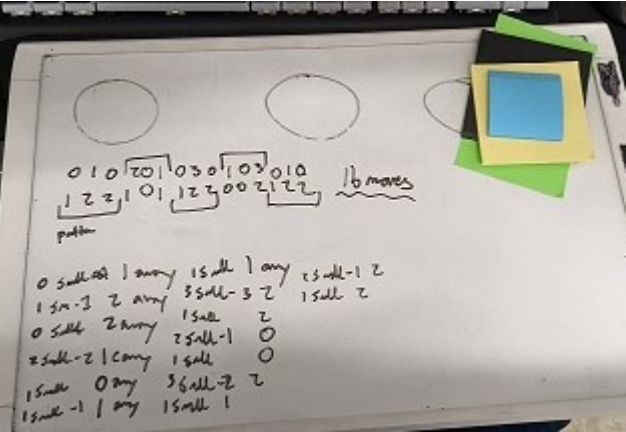 0 1 0 2 0 1 0 3 0 1 0 3 0 1 0
1 2 2 1 0 1 1 2 2 0 0 2 1 2 2 16 moves
0 small 1 away 1 small 1 away 2 small-1 2
1 sm-1 2 away 3 small-3 2 1 small 2
0 small 2 away 1 small 2
2 small-2 1 away 2 small-1 0
1 small 0
1 small 0 away 3 small-2 2
1 small-1 1 away 1 small 1